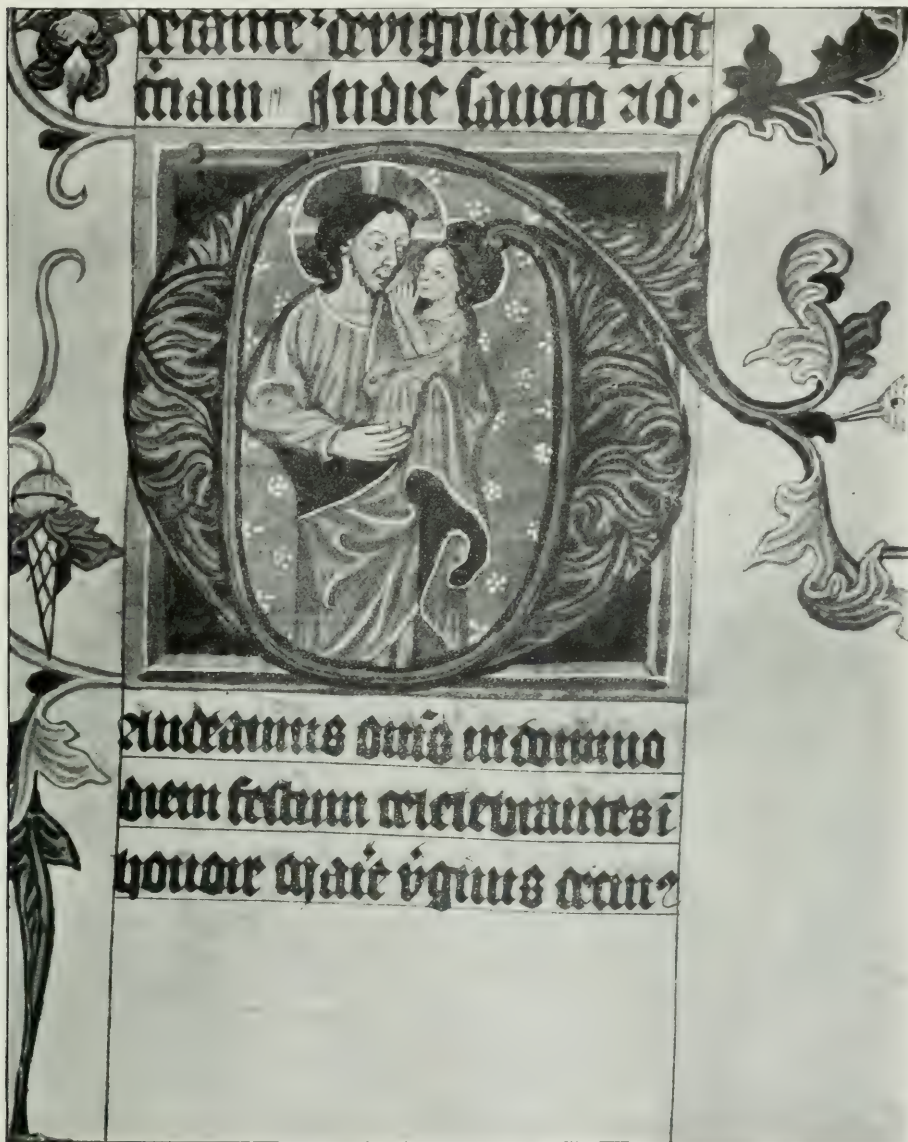 cetante᷒ de vigilia v̄o post
mām In die sancto ad·
Audeamus om̄s in domino
diem festum celelebrantes ī
honore marie v̄ginis de cui᷒